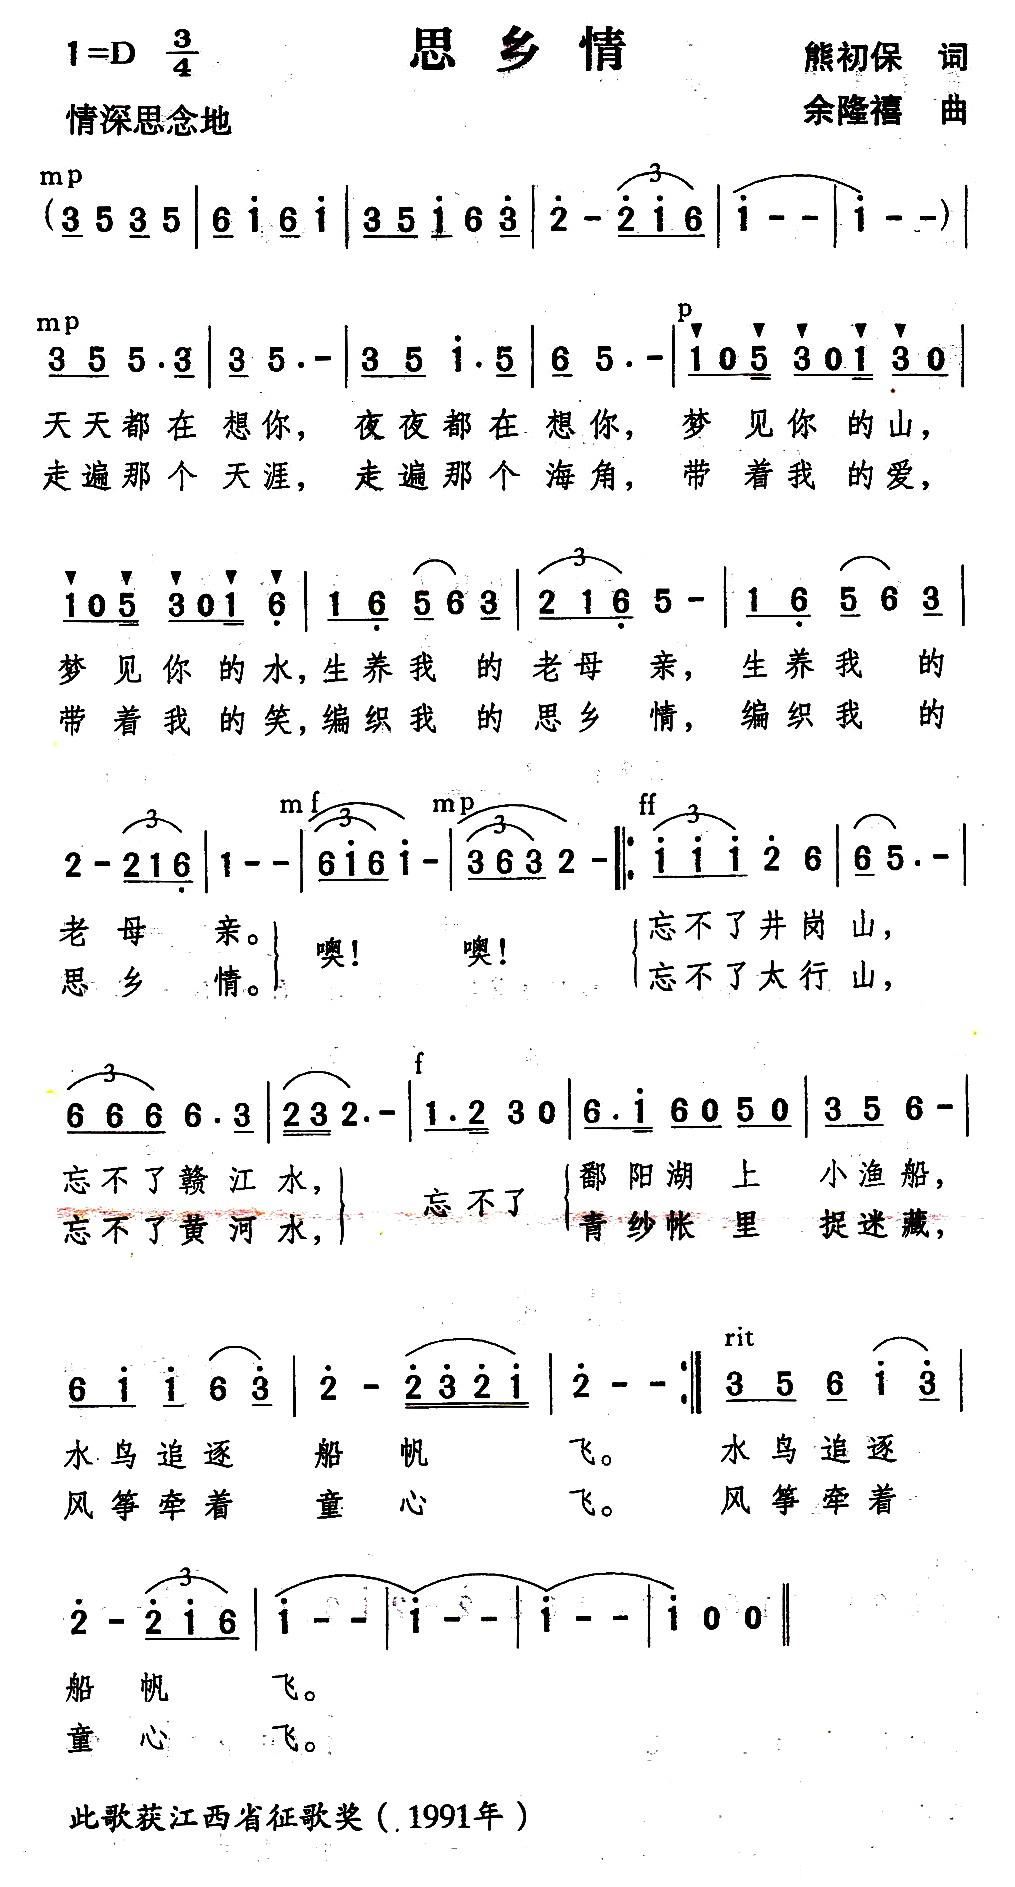 1=D 3/4 思乡情 熊初保 词
情深思念地 余隆禧 曲
mp
(3 5 3 5 | 6 i 6 i | 3 5 i 6 3 | 2 - 2 i 6 | i - - | i - -) |
mp p
3 5 5. 3 | 3 5. - | 3 5 i. 5 | 6 5. - | 1 0 5 3 0 1 3 0 |
天天都在 想你， 夜夜都在 想你， 梦 见你 的山，
走遍那个 天涯， 走遍那个 海角， 带 着我 的爱，
1 0 5 3 0 1 6 | 1 6 5 6 3 | 2 1 6 5 - | 1 6 5 6 3 |
梦 见你 的水，生养我 的 老母 亲， 生养我 的
带 着我 的笑，编织我 的 思乡 情， 编织我 的
mf mp ff
2 - 2 1 6 | 1 - - | 6 i 6 i - | 3 6 3 2 - |: i i i 2 6 | 6 5. - |
老 母 亲。 噢！ 噢！ 忘不了井岗山，
思 乡 情。 忘不了太行山，
f
6 6 6 6. 3 | 2 3 2. - | 1. 2 3 0 | 6. i 6 0 5 0 | 3 5 6 - |
忘不了赣江水， 忘不了 鄱阳湖 上 小渔船，
忘不了黄河水， 青纱帐 里 捉迷藏，
rit
6 i i 6 3 | 2 - 2 3 2 i | 2 - - :| 3 5 6 i 3 |
水鸟追逐 船 帆 飞。 水鸟追逐
风筝牵着 童 心 飞。 风筝牵着
2 - 2 i 6 | i - - | i - - | i - - | i 0 0 ‖
船 帆 飞。
童 心 飞。
此歌获江西省征歌奖（1991年）